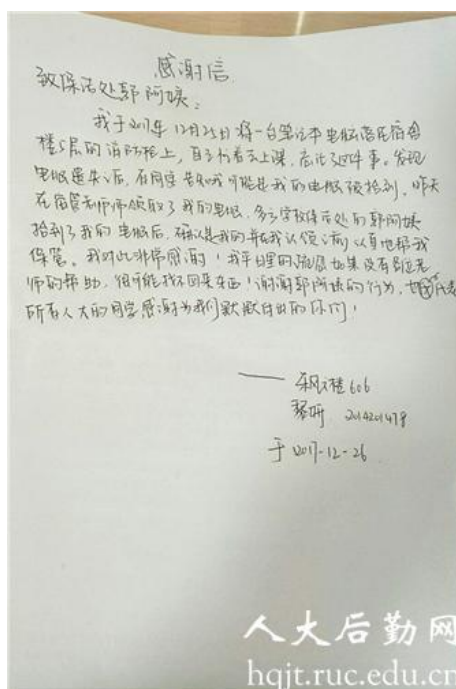 感谢信
致保洁处郭阿姨：
我于2017年12月25日将一台笔记本电脑落在宿舍
楼5层的消防栓上，自己忙着去上课，忘记了这件事。发现
电脑遗失后，有同学告知我可能是我的电脑被捡到，昨天
在宿管老师领取了我的电脑，
捡到了我的电脑后，确认是我的并在我认领之前认真地帮我
保管。我对此非常感谢！我平日里的 如果没有
师的帮助，很可能找不回来东西！谢谢郭阿姨的行为，也代表
所有人大的同学感谢为我们默默付出的你们！
—— 楼606
妍 201420147
于2017-12-26
人大后勤网
hqjt.ruc.edu.cn